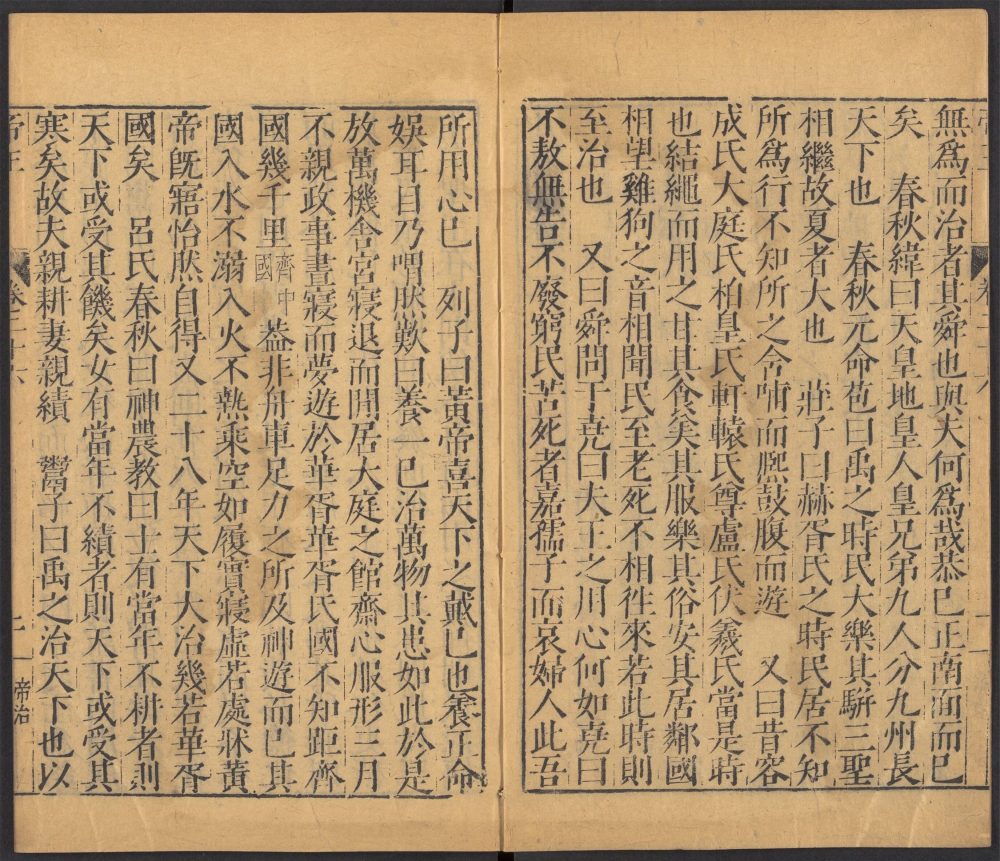 無爲而治者其舜也與夫何爲哉恭已正南面而已
矣　春秋緯曰天皇地皇人皇兄弟九人分九州長
天下也　春秋元命苞曰禹之時民大樂其騈三聖
相繼故夏者大也　莊子曰赫胥氏之時民居不知
所爲行不知所之含哺而熈鼓腹而遊　又曰昔容
成氏大庭氏柏皇氏軒轅氏尊盧氏伏羲氏當是時
也結繩而用之甘其食美其服樂其俗安其居鄰國
相望雞狗之音相聞民至老死不相徃來若此時則
至治也　又曰舜問于堯曰夫王之用心何如堯曰
不敖無告不廢窮民苦死者嘉孺子而哀婦人此吾
所用心已　列子曰黃帝喜天下之戴已也養正命
娛耳目乃喟然歎曰養一已治萬物其患如此於是
放萬機舍宮寢退而閒居大庭之館齋心服形三月
不親政事晝寢而夢遊於華胥華胥氏國不知距齊
國幾千里齊中國葢非舟車足力之所及神遊而已其
國入水不溺入火不熱乘空如履實寢虛若處牀黃
帝旣寤怡然自得又二十八年天下大治幾若華胥
國矣　呂氏春秋曰神農教曰士有當年不耕者則
天下或受其饑矣女有當年不績者則天下或受其
寒矣故夫親耕妻親績　鬻子曰禹之治天下也以
帝治